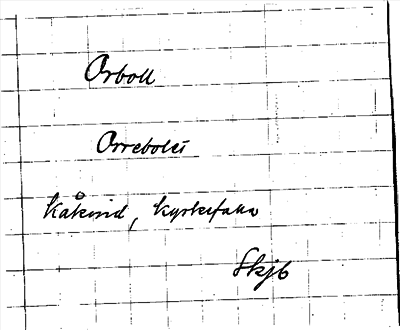 Orboll
Orrebolet
Kåkind, Kyrkefalla
Skjb